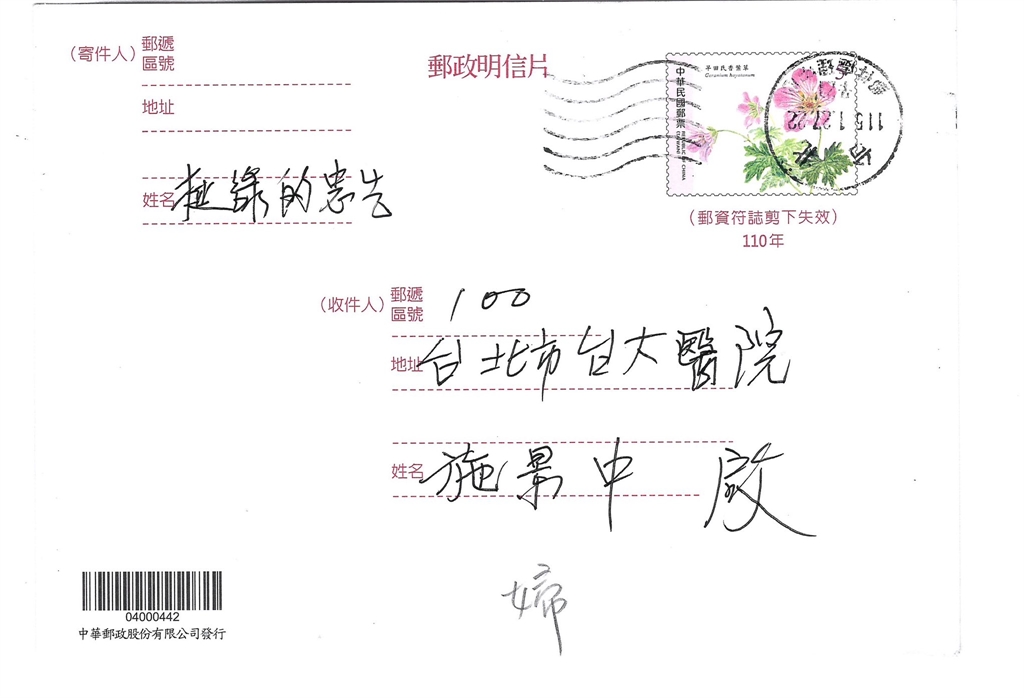 (寄件人) 郵遞區號
地址
姓名 挺綠的忠告
郵政明信片
早田氏香葉草
Geranium hayatanum
中華民國郵票
REPUBLIC OF CHINA
115.1.27.22
(郵資符誌剪下失效)
110年
(收件人) 郵遞區號 100
地址 台北市台大醫院
姓名 施景中 啟
婦
04000442
中華郵政股份有限公司發行